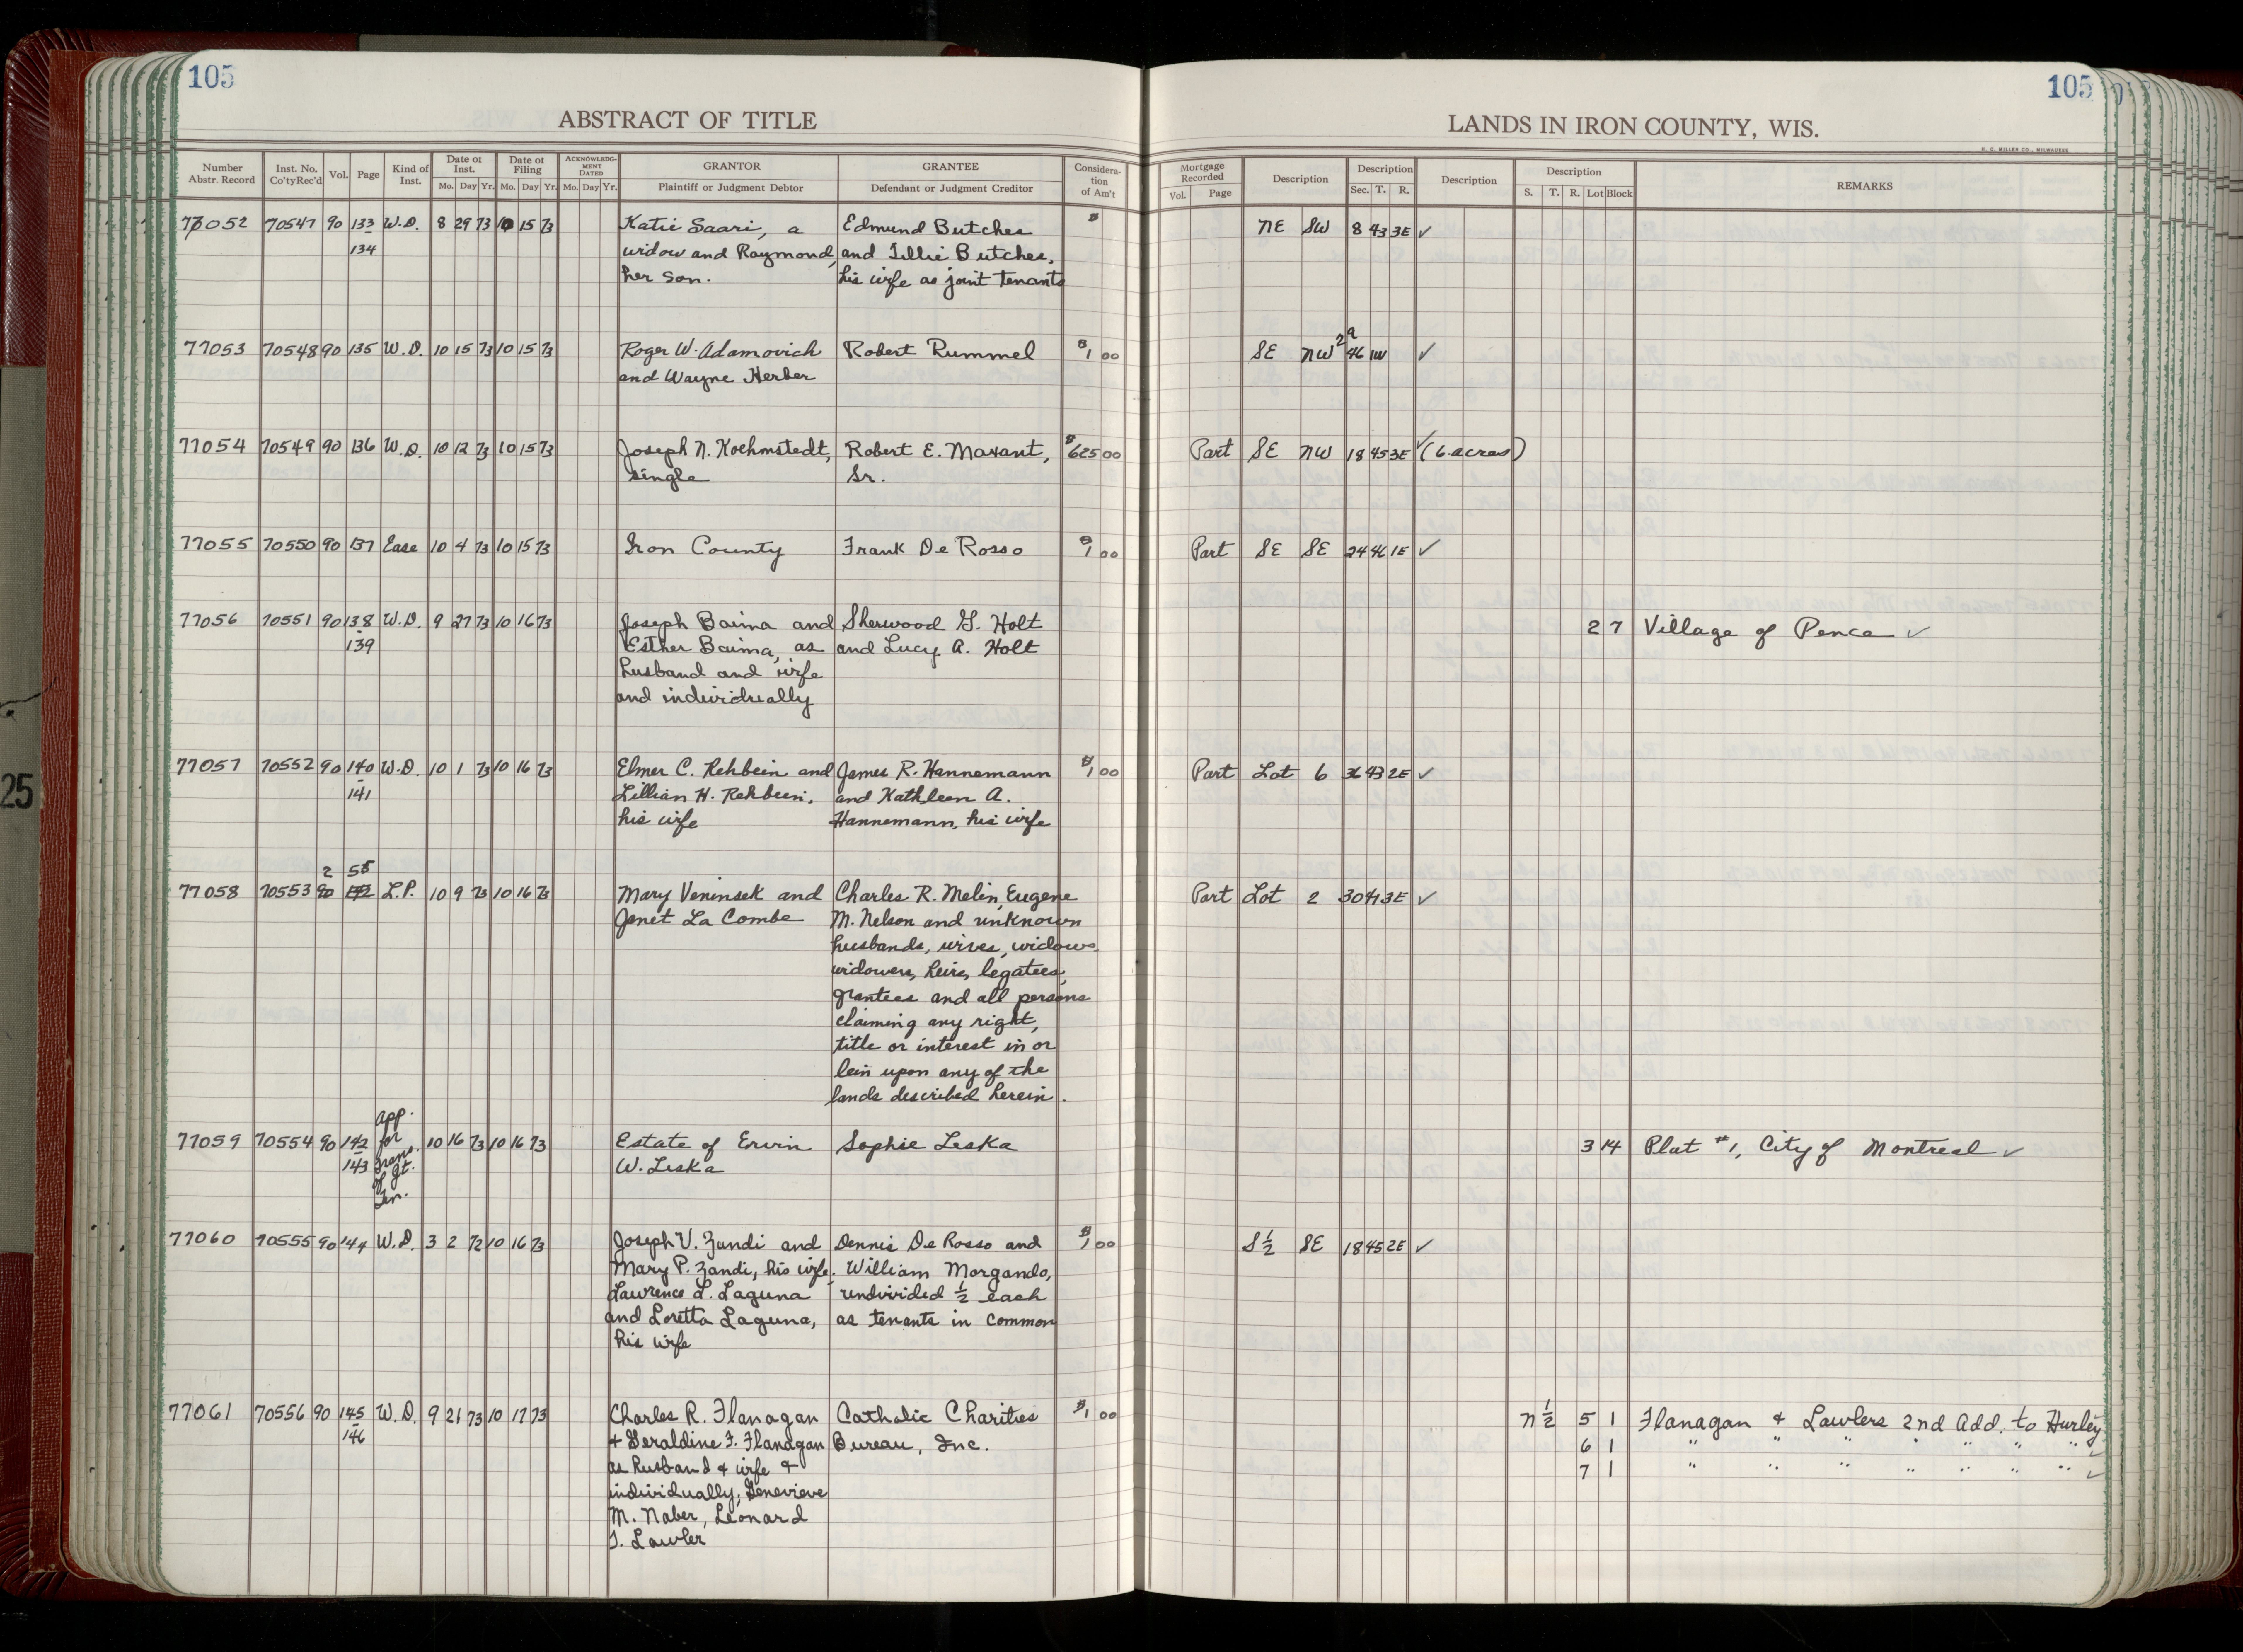 105
105
ABSTRACT OF TITLE
LANDS IN IRON COUNTY, WIS.
H. C. MILLER CO., MILWAUKEE
Number Abstr. Record | Inst. No. Co'ty Rec'd | Vol. | Page | Kind of Inst. | Date of Inst. Mo. Day Yr. | Date of Filing Mo. Day Yr. | ACKNOWLEDGMENT DATED Mo. Day Yr. | GRANTOR Plaintiff or Judgment Debtor | GRANTEE Defendant or Judgment Creditor | Consideration of Am't | Mortgage Recorded Vol. Page | Description | Description Sec. T. R. | Description | Description S. T. R. Lot Block | REMARKS
77052 70547 90 133 W.D. 8 29 73 10 15 73 Katie Saari, a Edmund Butches $ NE SW 8 43 3E ✓
134 widow and Raymond, and Tillie Butches,
her son. his wife as joint tenants
29
77053 70548 90 135 W.D. 10 15 73 10 15 73 Roger W. Adamovich Robert Rummel $1 00 SE NW 46 1W ✓
and Wayne Herber
77054 70549 90 136 W.D. 10 12 73 10 15 73 Joseph N. Kochmstedt, Robert E. Maxant, $625 00 Part SE NW 18 45 3E ✓ (6 acres)
single Sr.
77055 70550 90 137 Ease 10 4 73 10 15 73 Iron County Frank De Rosso $1 00 Part SE SE 24 46 1E ✓
77056 70551 90 138 W.D. 9 27 73 10 16 73 Joseph Baima and Sherwood G. Holt 2 7 Village of Pence ✓
139 Esther Baima, as and Lucy A. Holt
husband and wife
and individually
77057 70552 90 140 W.D. 10 1 73 10 16 73 Elmer C. Rehbein and James R. Hannemann $1 00 Part Lot 6 36 43 2E ✓
141 Lillian H. Rehbein, and Kathleen A.
his wife Hannemann, his wife
2 55
77058 70553 90 142 L.P. 10 9 73 10 16 73 Mary Veninsek and Charles R. Melin, Eugene Part Lot 2 30 41 3E ✓
Janet La Combe M. Nelson and unknown
husbands, wives, widows,
widowers, heirs, legatees,
grantees and all persons
claiming any right,
title or interest in or
lein upon any of the
lands described herein.
77059 70554 90 142 App. for 10 16 73 10 16 73 Estate of Ervin Sophie Leska 3 14 Plat #1, City of Montreal ✓
143 Trans. of Jt. Ten. W. Leska
77060 70555 90 144 W.D. 3 2 72 10 16 73 Joseph V. Zandi and Dennis De Rosso and $1 00 S½ SE 18 45 2E ✓
Mary P. Zandi, his wife, William Morgando,
Lawrence L. Laguna undivided ½ each
and Loretta Laguna, as tenants in common
his wife
77061 70556 90 145 W.D. 9 21 73 10 17 73 Charles R. Flanagan Catholic Charities $1 00 N½ 5 1 Flanagan & Lawlers 2nd Add. to Hurley
146 & Geraldine F. Flanagan Bureau, Inc. 6 1 " " " " " " " ✓
as husband & wife & 7 1 " " " " " " " ✓
individually, Genevieve
M. Naber, Leonard
J. Lawler
25